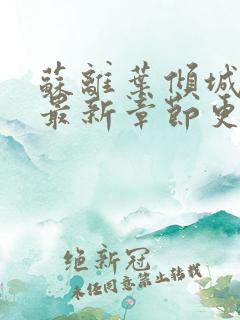 蘇離葉傾城
最新章節更
絕新冠
未经同意禁止转载